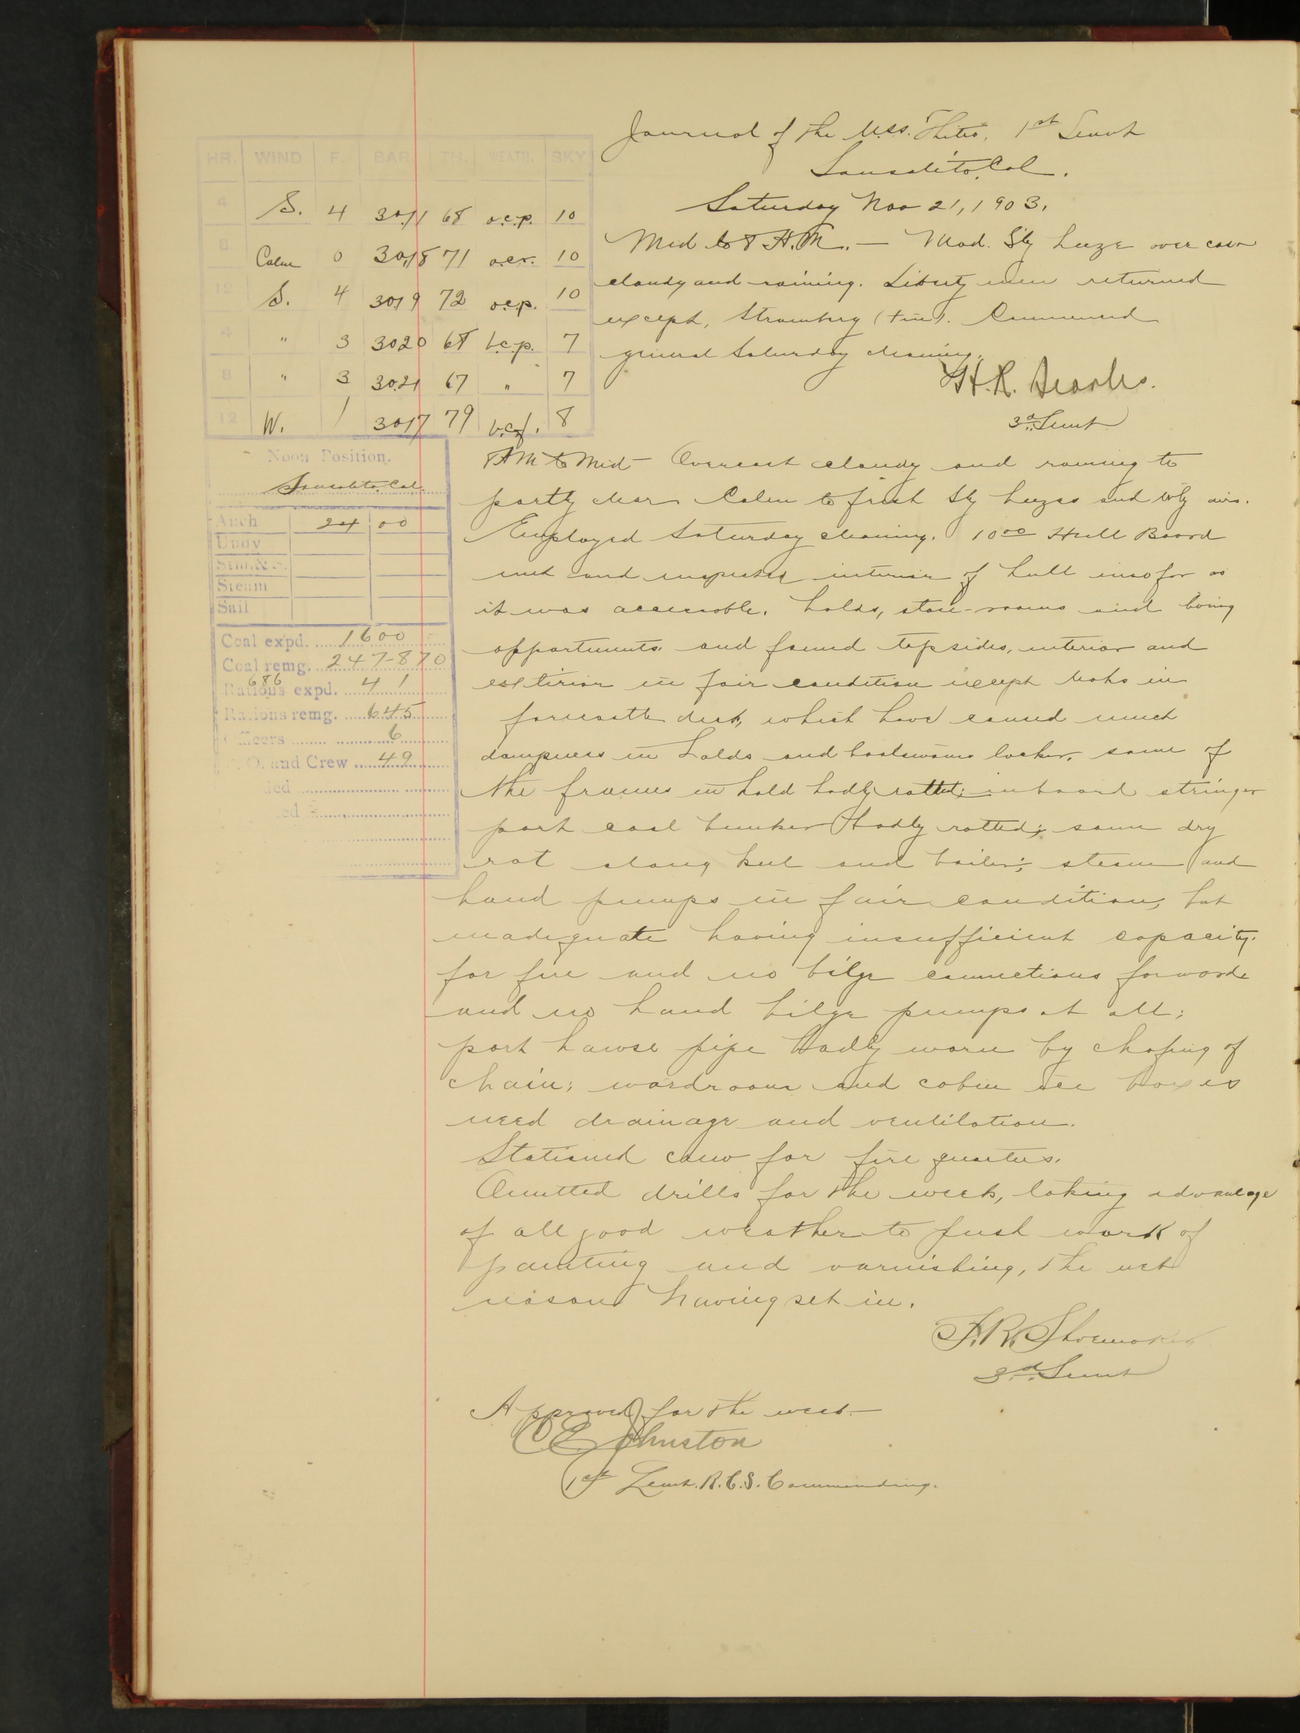 Journal of the U.S.S. Thetis, 1st Lieut
Sausalito, Cal.
Saturday Nov 21, 1903.
HR. WIND F. BAR. TH. WEATH. SKY
4 S. 4 30.11 68 o.c.p. 10
8 Calm 0 30.18 71 o.c.r. 10
12 S. 4 30.19 72 o.c.p. 10
4 " 3 30.20 68 b.c.p. 7
8 " 3 30.21 67 " 7
12 W. 1 30.17 79 b.c.f. 8
Noon Position.
Sausalito, Cal.
Anch 24 00
Undy
Stm.& S.
Steam
Sail
Coal expd. 1600
Coal remg. 247-870
686
Rations expd. 41
Rations remg. 645
Officers 6
P. O. and Crew 49
Mid to 8 A.M. — Mod. Sly breeze over cast
cloudy and raining. Liberty men returned
except, Stromberg (fire). Commenced
general Saturday cleaning.
3d Lieut
8 A M to Mid — Overcast cloudy and raining to
partly clear Calm to fresh Sly breezes and Wly airs.
Employed Saturday cleaning. 10 00 Hull Board
met and inspected interior of hull insofar as
it was accessible, holds, store-rooms and living
appartments and found topsides, interior and
exterior in fair condition except leaks in
forecastle deck, which have caused much
dampness in holds and boatswains locker, some of
the frames in hold badly rotted; inboard stringer
port coal bunker badly rotted; some dry
rot along keel and boiler; steam and
hand pumps in fair condition, but
inadequate having insufficient capacity.
for fire and no bilge connections forward
and no hand bilge pumps at all;
port hawse pipe badly worn by chafing of
chain; wardroom and cabin ice boxes
need drainage and ventilation.
Stationed crew for fire quarters.
Omitted drills for the week, taking advantage
of all good weather to push work of
painting and varnishing, the wet
season having set in.
F. R. Shoemaker
3d Lieut
Approved for the week —
C. E. Johnston
1st Lieut. R.C.S. Commanding.